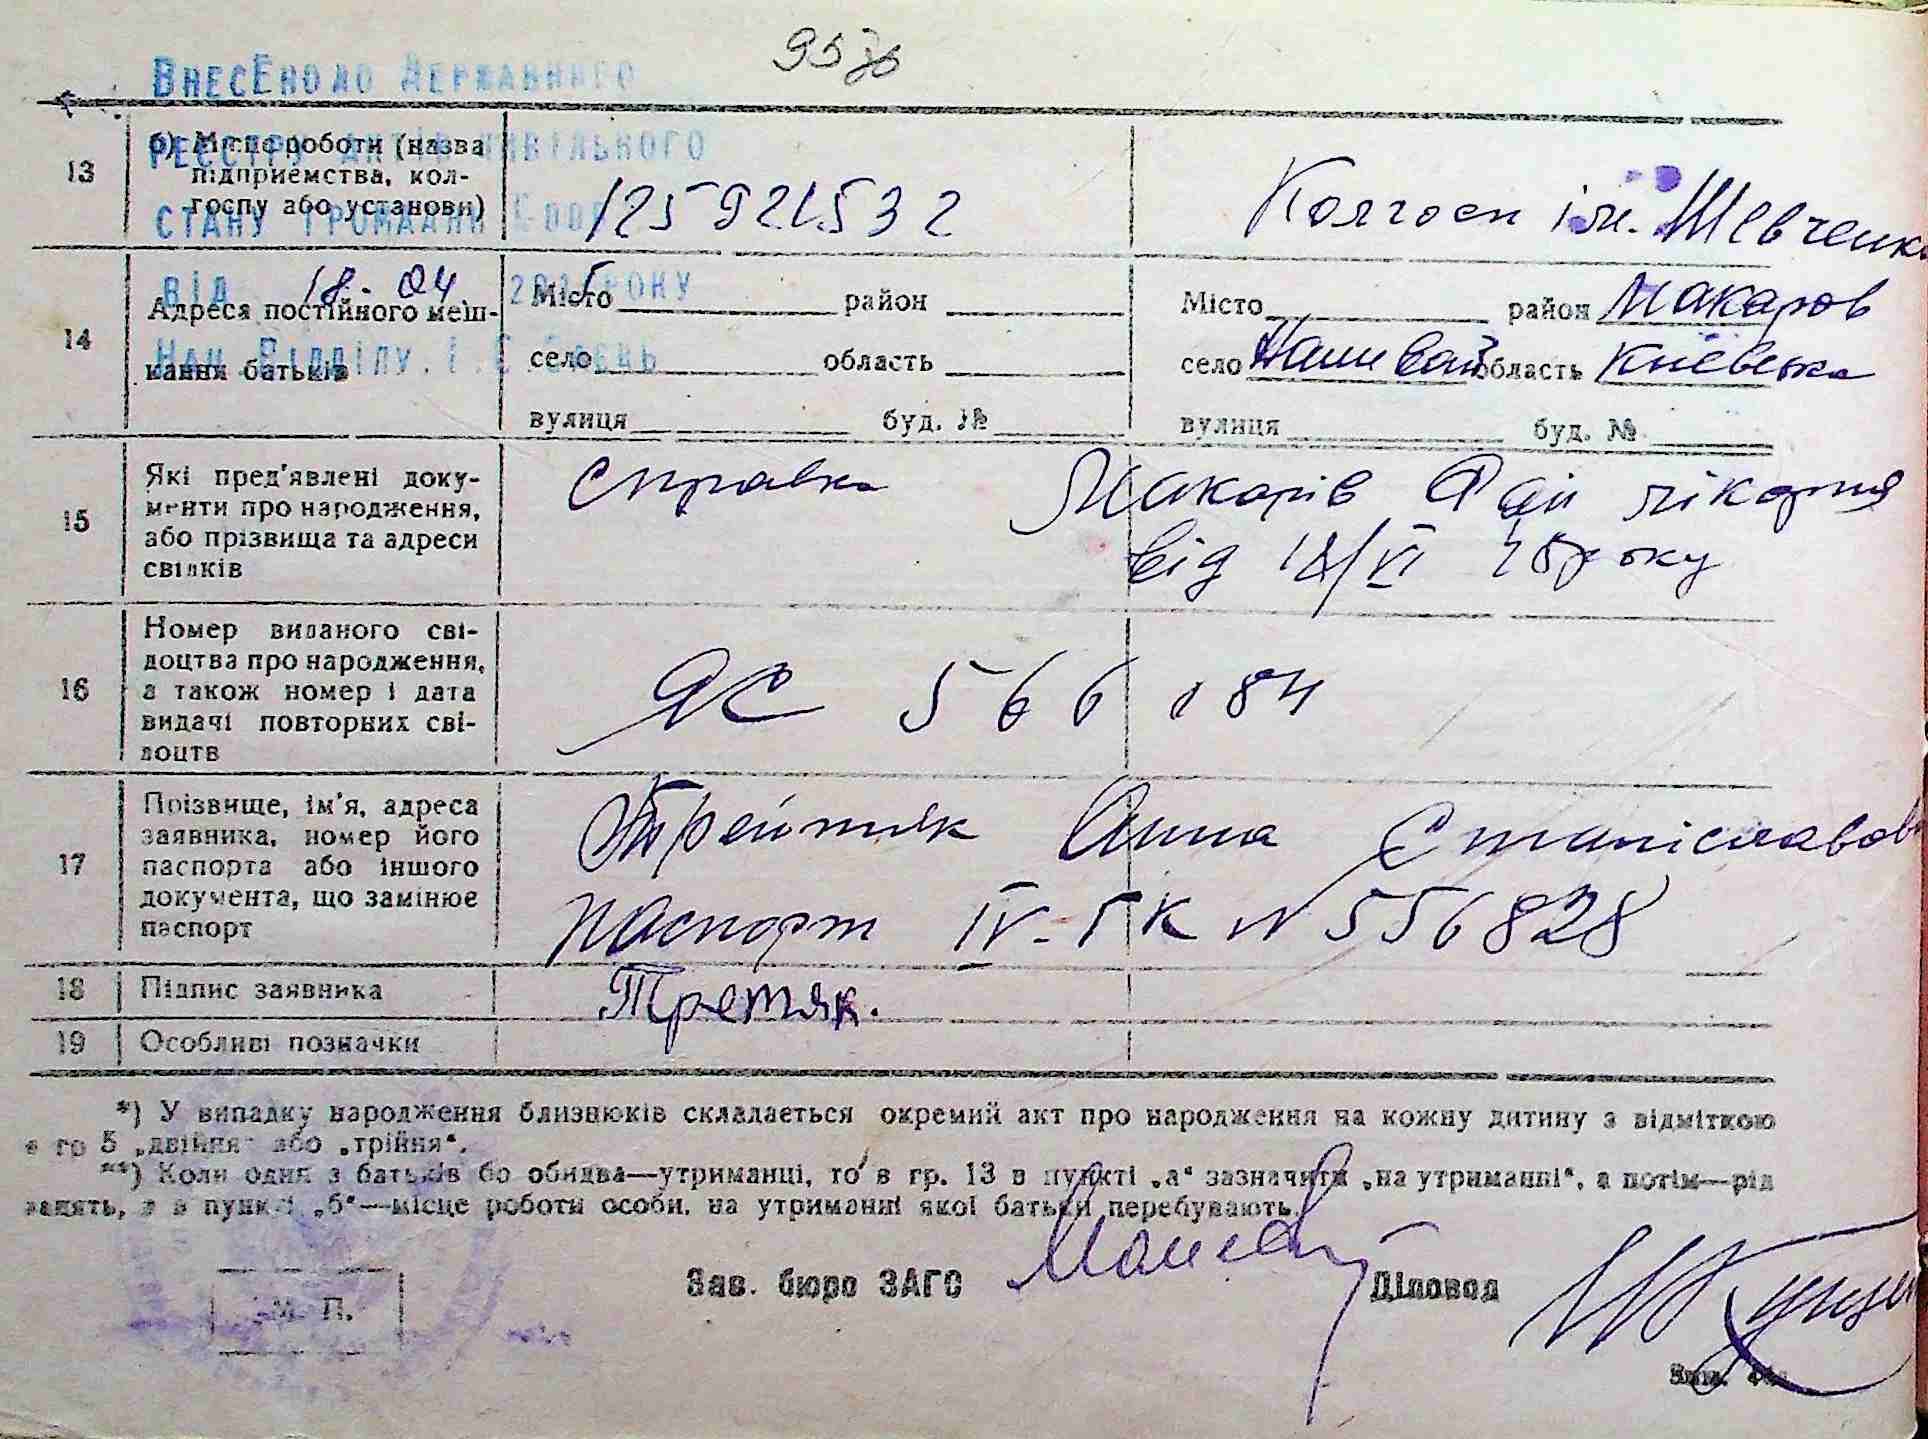 95
Внесено до Державного
реєстру актів цивільного
стану громадян
від 18.04 2015 року
13
б) Місце роботи (назва
підприємства, кол-
госпу або установи)
Колгосп ім. Шевченка
14
Адреса постійного меш-
кання батьків
Місто район
село область
вулиця буд. №
Місто район Макаров
село область Киевська
вулиця буд. №
15
Які пред'явлені доку-
менти про народження,
або прізвища та адреси
свідків
Справка Макарів Рай лікарня
від 18/VI року
16
Номер виданого сві-
доцтва про народження,
а також номер і дата
видачі повторних сві-
доцтв
ЯС 566 184
17
Прізвище, ім'я, адреса
заявника, номер його
паспорта або іншого
документа, що замінює
паспорт
Анна Станіславов
паспорт IV-ГК N 556828
18
Підпис заявника
Третяк.
19
Особливі позначки
*) У випадку народження близнюків складається окремий акт про народження на кожну дитину з відміткою
в гр 5 „двійня" або „трійня".
**) Коли один з батьків бо обидва—утриманці, то в гр. 13 в пункті „а" зазначити „на утриманні", а потім—рід
занять, а в пункті „б"—місце роботи особи, на утриманні якої батьки перебувають.
Зав. бюро ЗАГС
Діловод
М. П.